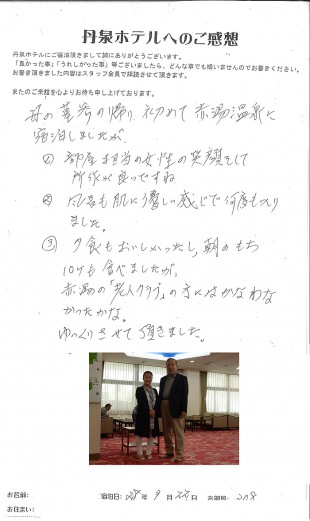 丹泉ホテルへのご感想
丹泉ホテルにご宿泊頂きまして誠にありがとうございます。
「良かった事」「うれしかった事」等ございましたら、どんな事でも構いませんのでお書きください。
お書き頂きました内容はスタッフ全員で拝読させて頂きます。
またのご来館を心よりお待ち申し上げております。
母の の帰り、初めて赤湯温泉に
宿泊しましたが
① 部屋担当の女性の笑顔そして
所作が良いですね
② 風呂も肌に優しい感じで何度も入り
ました。
③ 夕食もおいしかったし、朝のもち
10ケも食べましたが、
赤湯の「老人クラブ」の方にはかなわな
かったかな。
ゆっくりさせて頂きました。
お名前:
ご宿泊日: 年 9 月 日 お部屋: 208
お住まい: